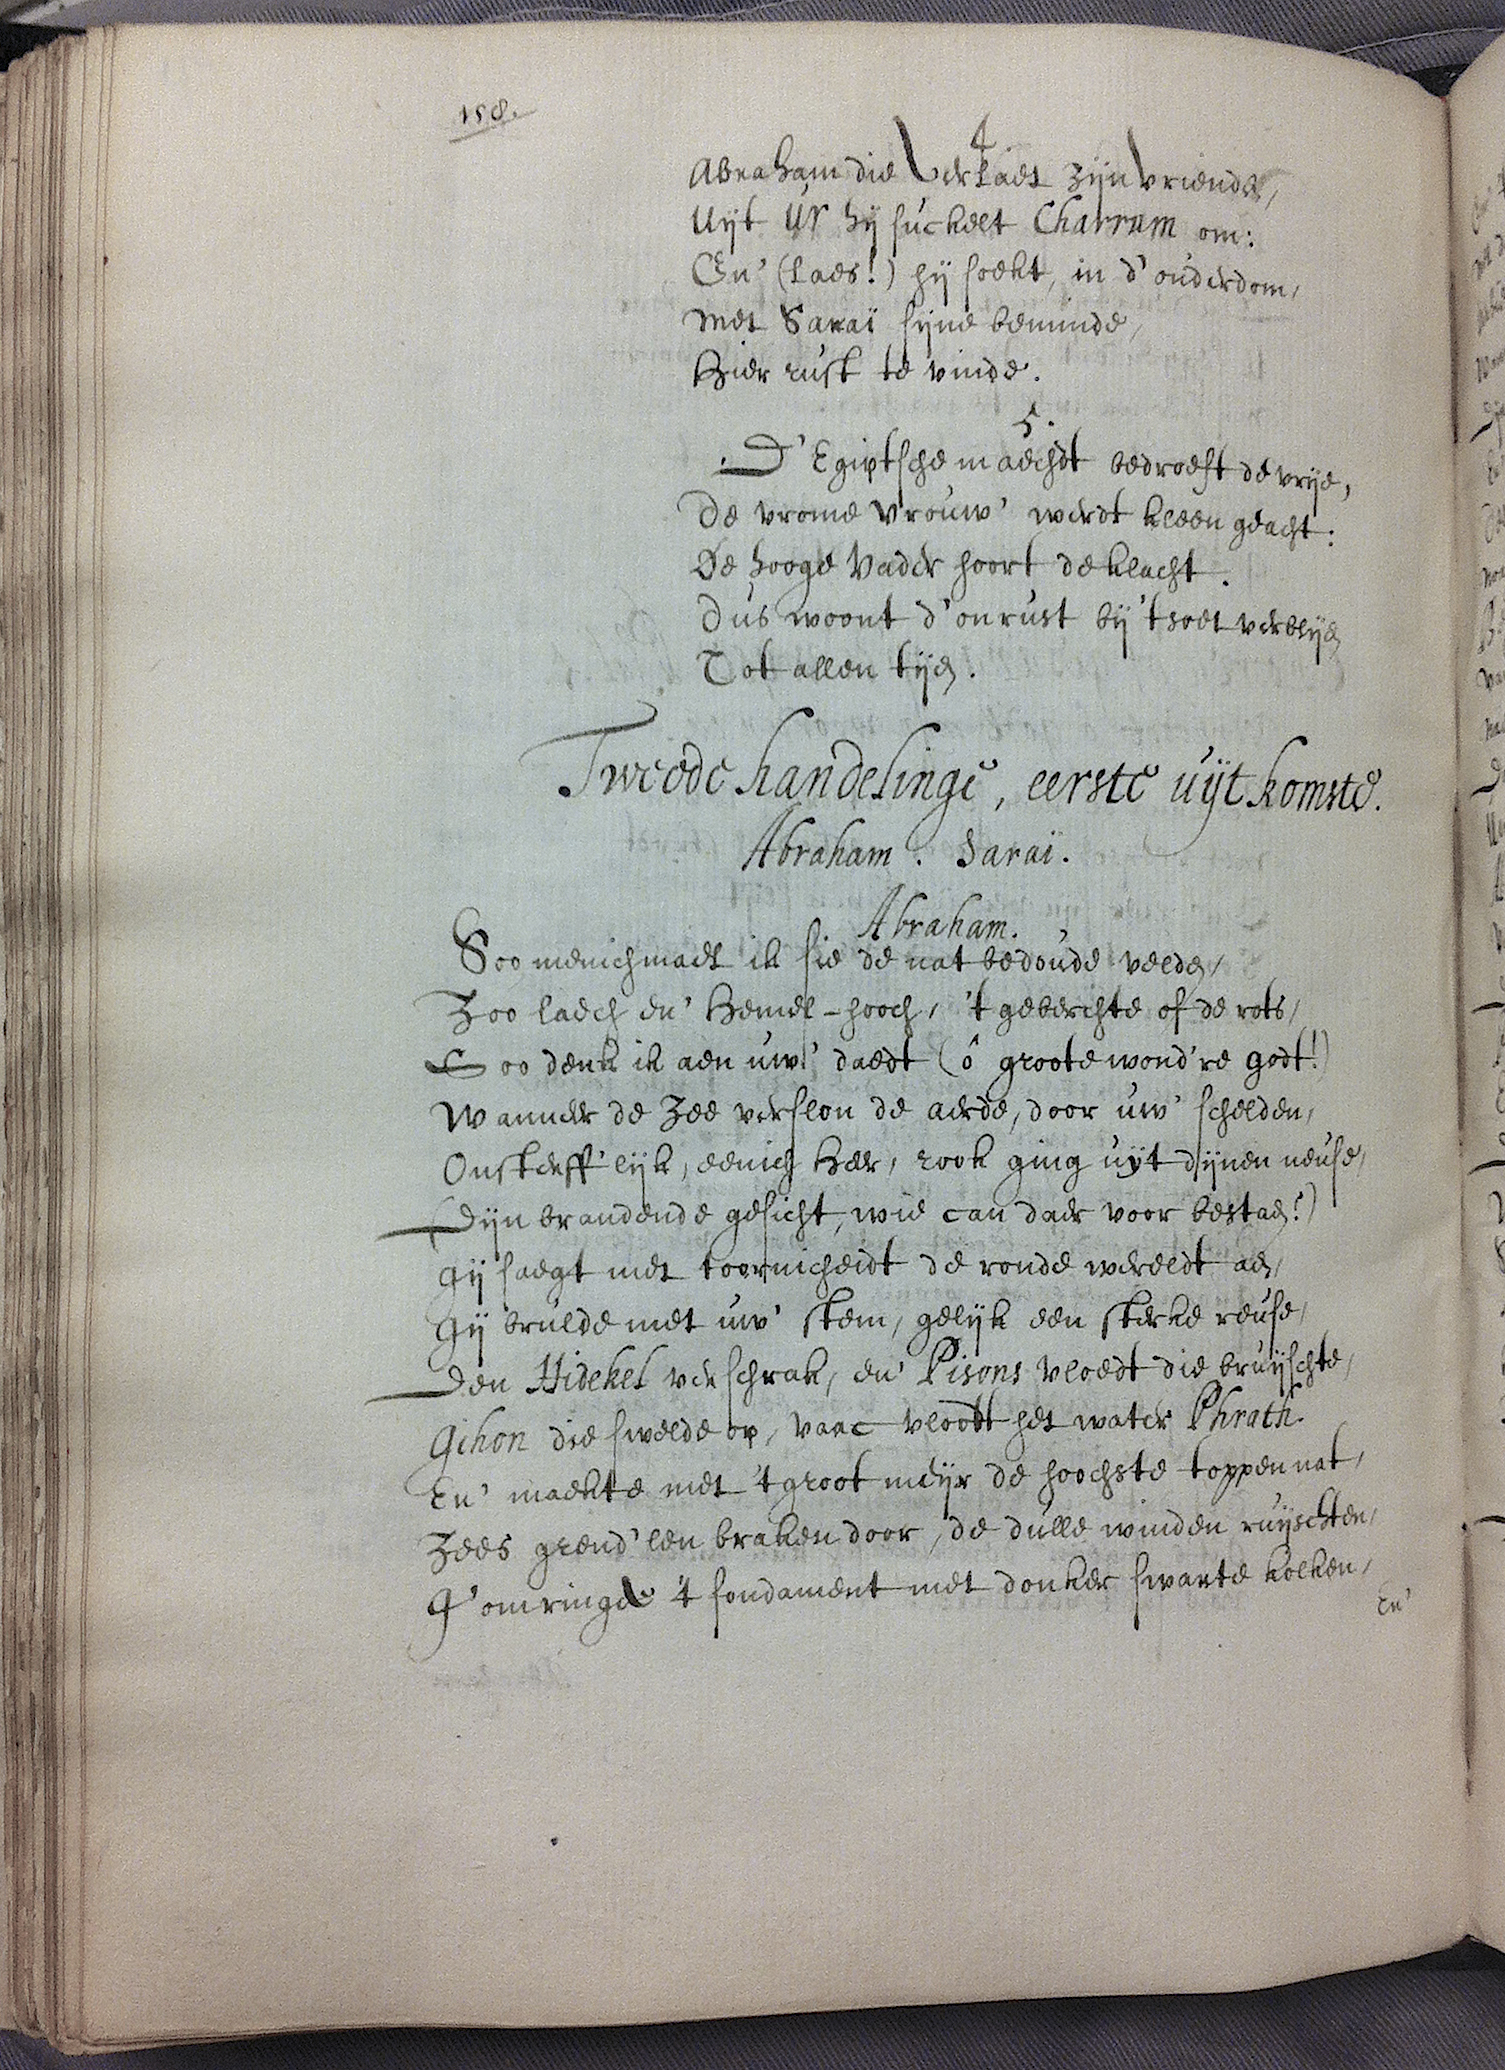 158.
4
Abraham die verlaet zijn vrienden,
Uijt Ur hij suckelt Charram om:
En' (laes!) hij soekt, in d'ouderdom,
Met Saraï sijne beminde,
Hier rust te vinde.
5.
D'Egiptsche maechdt bedroeft de vrije,
De vrome vrouw' werdt kleen geacht:
De hooge Vader hoort de klacht.
Dus woont d'onrust bij 't soet verblijen
Tot allen tijen.
Tweede handelinge, eerste uijtkomste.
Abraham. Saraï.
Abraham.
Soo menichmael ik sie de nat bedoude velden,
Zoo laech en' Hemel-hooch, 't geberchte of de rots,
Soo denk ik aen uw' daedt (ô groote wond're godt!)
Wanneer de Zee verslon de aerde, door uw' schelden,
Onsterff'lijk, eenich Heer, rook ging uijt dijnen neuse,
(Dijn brandende gesicht, wie can daer voor bestaen?)
Gij saegt met toornicheidt de ronde wereldt aen,
Gij brulde met uw' stem, gelijk een sterke reuse,
Den Hidekel verschrak, en' Pisons vloedt die bruijschte,
Gihon die swelde op, vaac vloodt het water Phrath.
En' maekte met 't groot meijr de hoochste toppen nat,
Zees grend'len braken door, de dulle winden ruijschten,
G'omringde 't fondament met donker swarte kolken,
En'